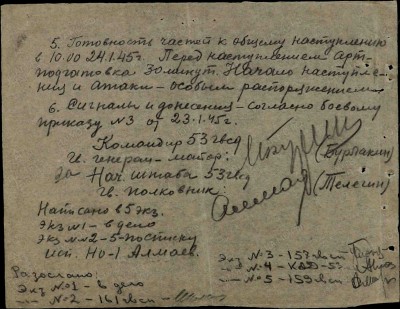 5. Готовность частей к общему наступлению
в 10.00 24.1.45г. Перед наступлением арт-
подготовка 30 минут. Начало наступле-
ния и атаки - особым распоряжением
6. Сигналы и донесения - согласно боевому
приказу №3 от 23.1.45г.
Командир 53 гвсд
гв. генерал-майор:
(Бурлакин)
За Нач. штаба 53 гвсд
гв. полковник:
(Телегин)
Написано в 5 экз.
Экз №1 - в дело
Экз №№2-5 - по списку
исп. НО-1 Алмаев.
Разослано:
Экз №1 - в дело
—"— №2 - 161 гвсп -
Экз №3 - 157 гвсп
—"— №4 - КАД-53
—"— №5 - 159 гвсп